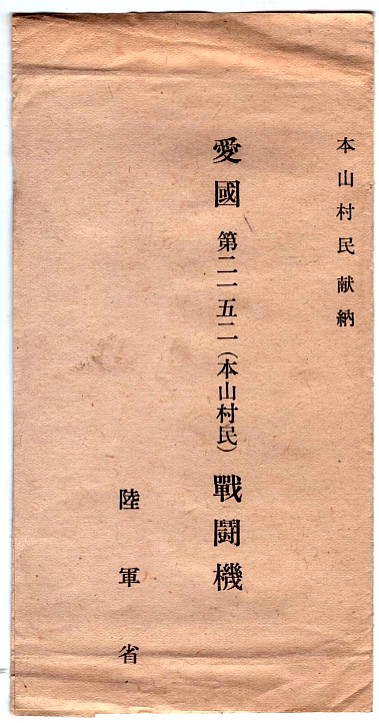 本山村民献納
愛國第二一五二(本山村民)戰鬪機
陸軍省